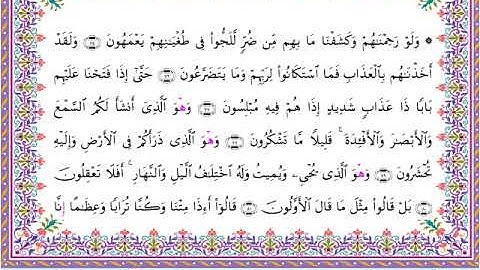 ۞ وَلَوْ رَحِمْنَـٰهُمْ وَكَشَفْنَا مَا بِهِم مِّن ضُرٍّ لَّلَجُّوا۟ فِى طُغْيَـٰنِهِمْ يَعْمَهُونَ ۝٧٥ وَلَقَدْ
أَخَذْنَـٰهُم بِٱلْعَذَابِ فَمَا ٱسْتَكَانُوا۟ لِرَبِّهِمْ وَمَا يَتَضَرَّعُونَ ۝٧٦ حَتَّىٰٓ إِذَا فَتَحْنَا عَلَيْهِم
بَابًا ذَا عَذَابٍ شَدِيدٍ إِذَا هُمْ فِيهِ مُبْلِسُونَ ۝٧٧ وَهُوَ ٱلَّذِىٓ أَنشَأَ لَكُمُ ٱلسَّمْعَ
وَٱلْأَبْصَـٰرَ وَٱلْأَفْـِٔدَةَ ۚ قَلِيلًا مَّا تَشْكُرُونَ ۝٧٨ وَهُوَ ٱلَّذِى ذَرَأَكُمْ فِى ٱلْأَرْضِ وَإِلَيْهِ
تُحْشَرُونَ ۝٧٩ وَهُوَ ٱلَّذِى يُحْىِۦ وَيُمِيتُ وَلَهُ ٱخْتِلَـٰفُ ٱلَّيْلِ وَٱلنَّهَارِ ۚ أَفَلَا تَعْقِلُونَ
۝٨٠ بَلْ قَالُوا۟ مِثْلَ مَا قَالَ ٱلْأَوَّلُونَ ۝٨١ قَالُوٓا۟ أَءِذَا مِتْنَا وَكُنَّا تُرَابًا وَعِظَـٰمًا إِنَّا